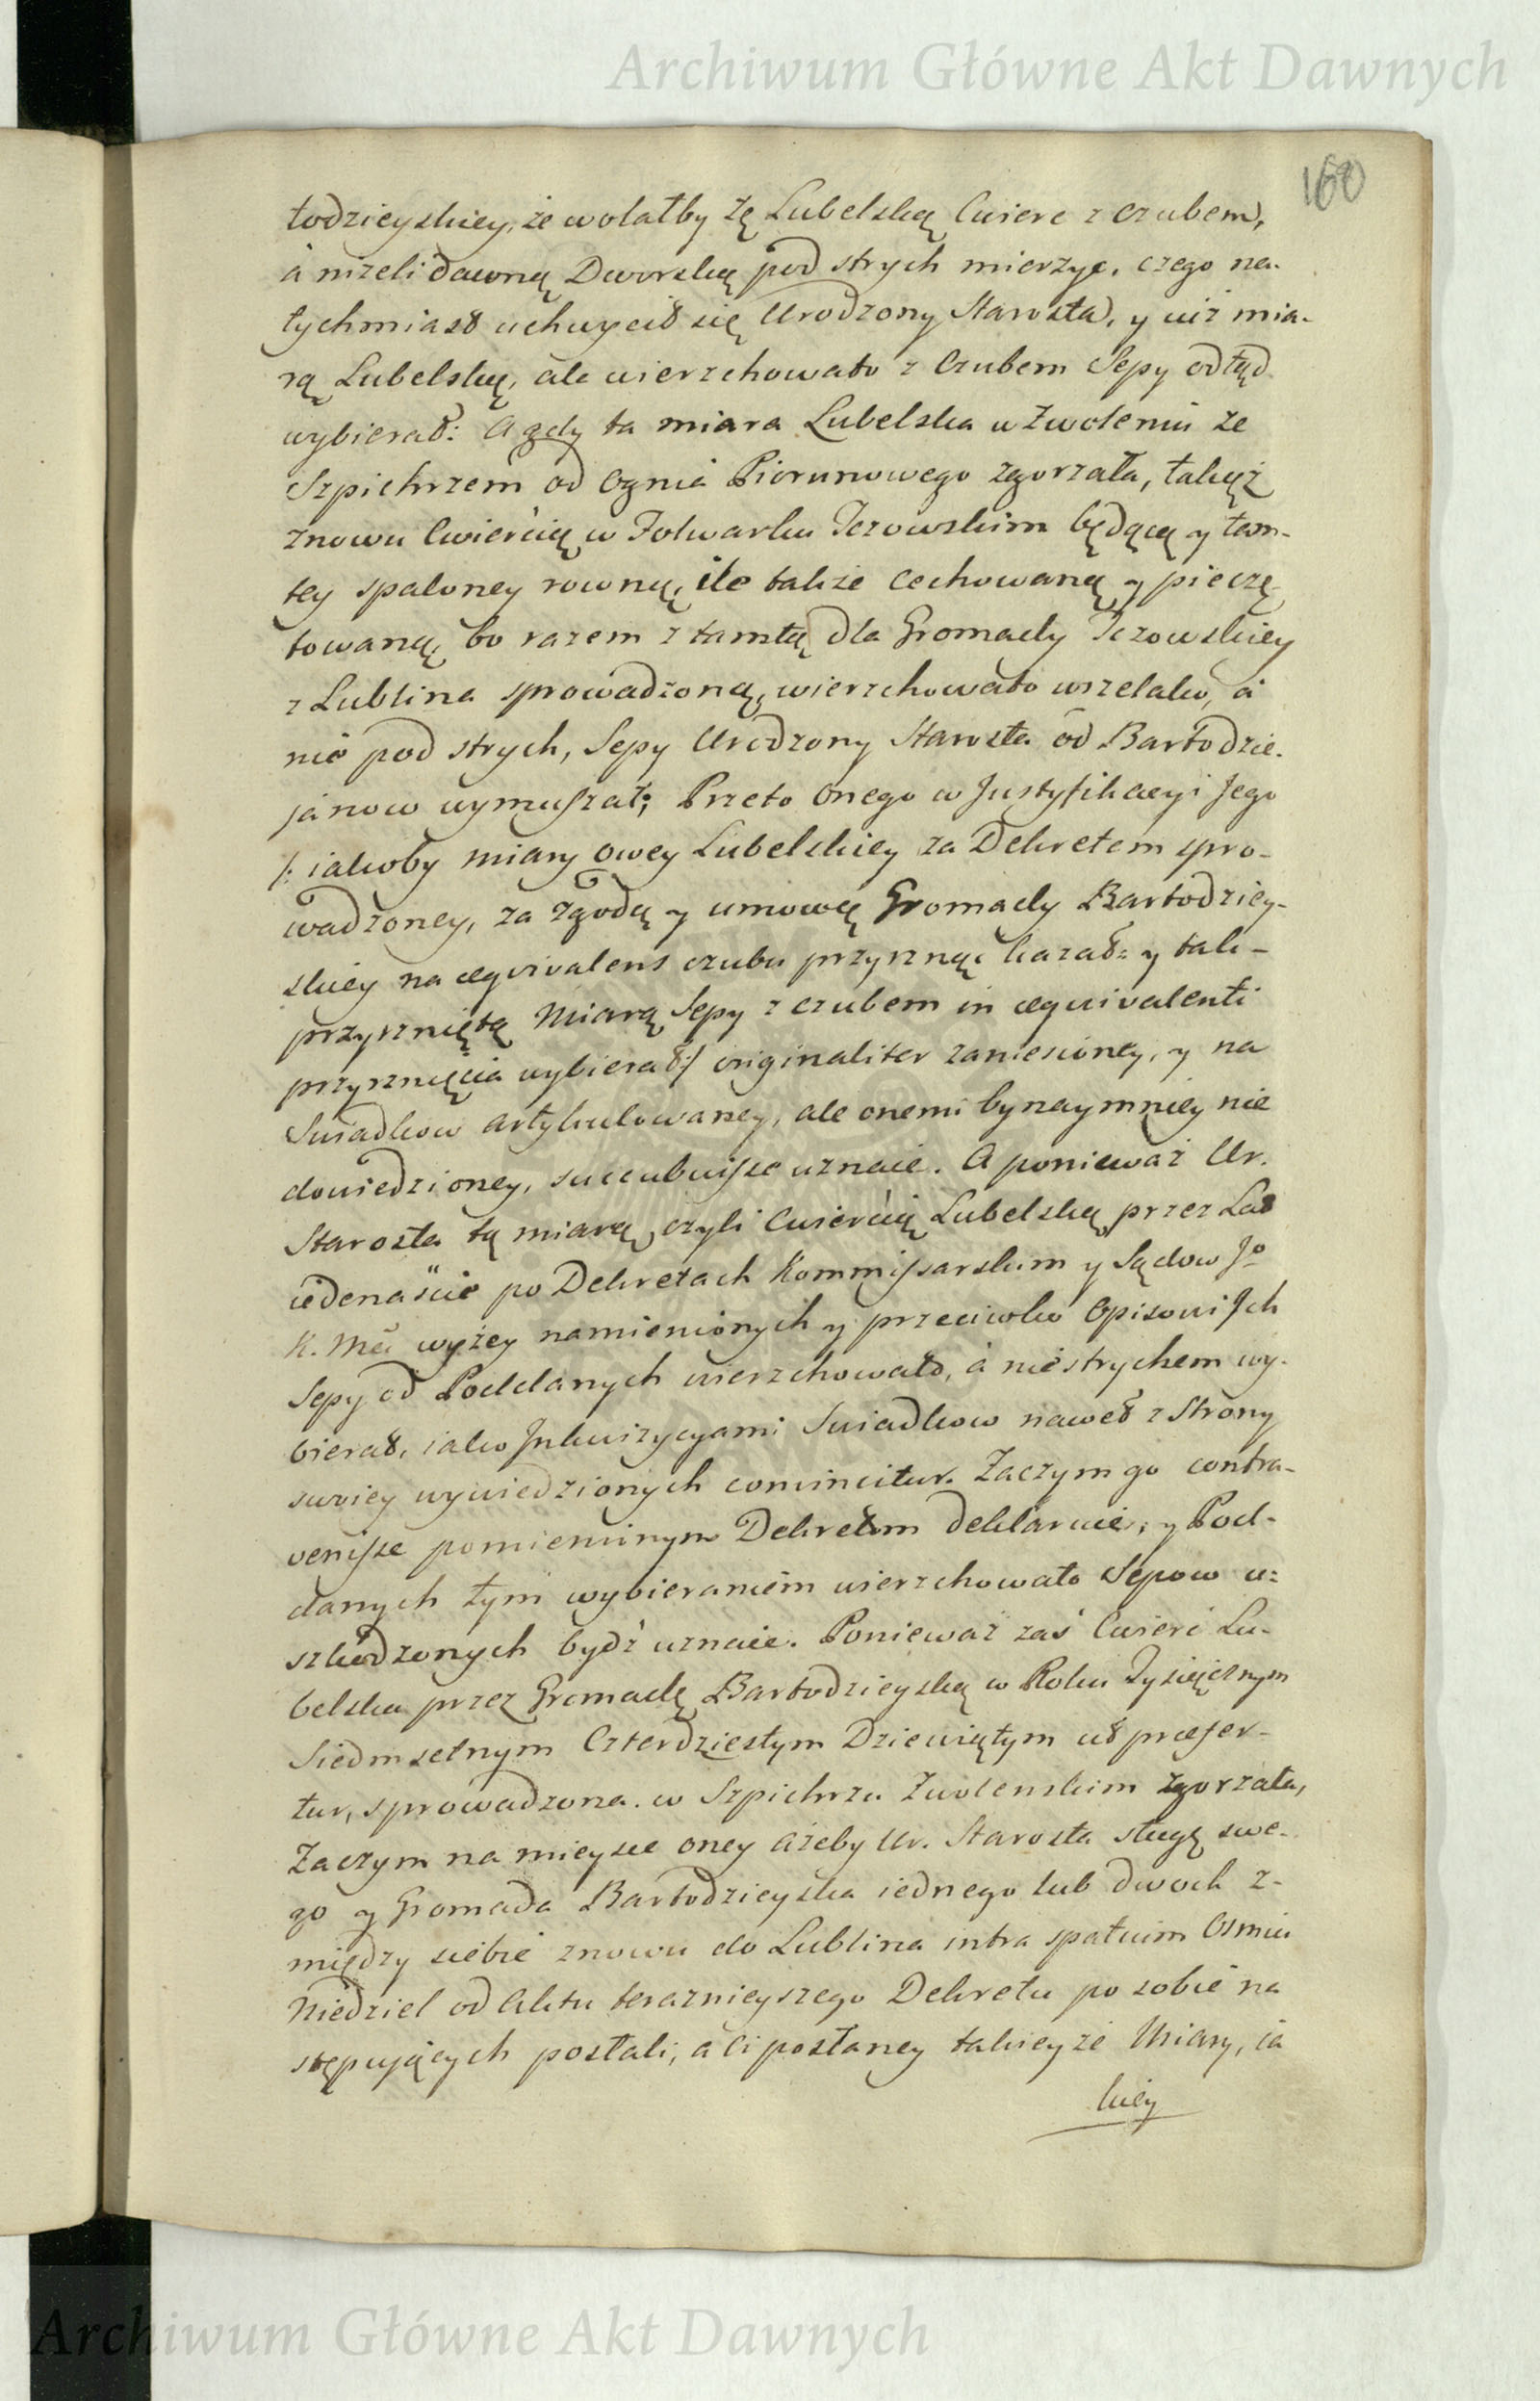 Archiwum Główne Akt Dawnych
160
łodzieyskiey, że wolałby tę Lubelską Cwierc z czubem,
á niżeli dawną Dworską pod strych mierzyc, czego na-
tychmiast uchwycił się Urodzony Starosta, y iuż mia-
rą Lubelską, ale wierzchowato z Czubem Sepy odtąd
wybierał: A gdy ta miara Lubelska w Zwoleniu ze
Szpichrzem od Ognia Piorunowego zgorzała, takąż
znowu Cwiercią w Folwarku Jezowskim będącą y tam-
tey spaloney rowną, ile także Cechowaną y pieczę-
towaną, bo razem z tamtą dla Gromady Jezowskiey
z Lublina sprowadzoną, wierzchowato wszelako, á
nie pod strych, Sepy Urodzony Starosta od Bartodzie-
janow wymuszał; Przeto Onego w Justyfikacyi Jego
/: iakoby miary Owey Lubelskiey za Dekretem spro-
wadzoney, za zgodą y umową Gromady Bartodziey-
skiey na æqvivalens czubu przyrznąć kazał: y tak-
przyrzniętą Miarą Sepy z czubem in æquivalenti
przyrznięcia wybierał:/ originaliter zaniesioney, y na
Swiadkow artykulowaney, ale onemi bynaymniey nie
dowiedzioney, succubuisse uznaie. A ponieważ Ur.
Starosta tą miarą, czyli Cwiercią Lubelską przez Lat
iedenaście po Dekretach Kommissarskim y Sądow Jo
K. Mci wyżey namienionych y przeciwko Opisowi Jch
Sepy od Poddanych wierzchowato, á nie strychem wy-
bierał, iako Jnkwizycyami Swiadkow nawet z Strony
swoiey wywiedzionych convincitur. Zaczym go contra-
venisse pomienionym Dekretom deklaruie, y Pod-
danych tym wybieraniem wierzchowato Sepow u-
szkodzonych bydź uznaie. Ponieważ zaś Cwierć Lu-
belska przez Gromadę Bartodzieyską w Roku Tysiącznym
Siedmsetnym Czterdziestym Dziewiątym ut præfer-
tur, sprowadzona. w Szpichrzu Zwolenskim zgorzała,
Zaczym na mieysce oney ażeby Ur. Starosta sługę swe-
go y Gromada Bartodzieyska iednego lub dwoch z-
między siebie znowu do Lublina intra spatium Osmiu
Niedziel od Aktu terazneyszego Dekretu po sobie na
stępuiących posłali, a Ci posłaney takieyże Miary, ia
kiey
Archiwum Główne Akt Dawnych